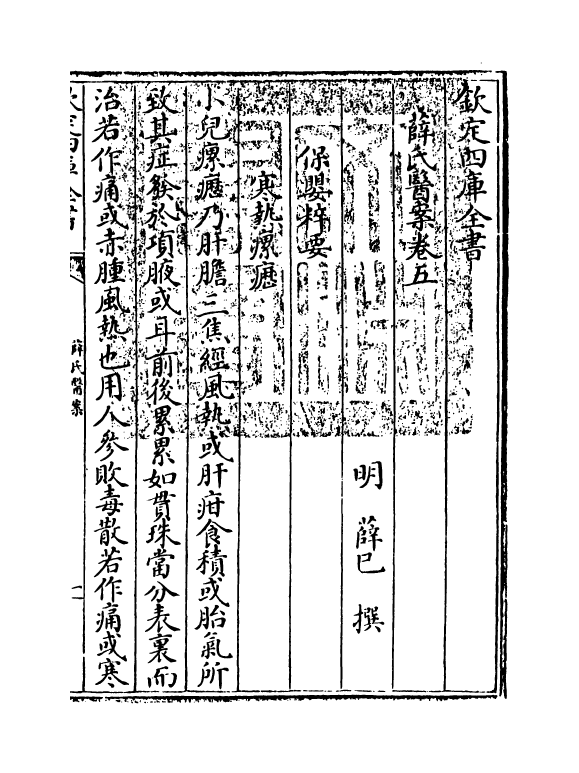 欽定四庫全書
薛氏醫案卷五
明 薛己 撰
保嬰粹要
寒熱瘰癧
小兒瘰癧乃肝膽三焦經風熱或肝疳食積或胎氣所
致其症發於項腋或耳前後累累如貫珠當分表裏而
治若作痛或赤腫風熱也用人參敗毒散若作痛或寒
欽定四庫全書
薛氏醫案
一